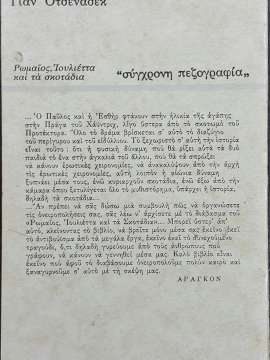 Γιάν Οτσενάσεκ
Ρωμαῖος, Ἰουλιέττα
καὶ τὰ σκοτάδια
“σύγχρονη πεζογραφία„
...Ὁ Παῦλος καὶ ἡ Ἐσθὴρ φτάνουν στὴν ἡλικία τῆς ἀγάπης
στὴν Πράγα τοῦ Χάϋντριχ, λίγο ὕστερα ἀπὸ τὸ σκοτωμὸ τοῦ
Προτέκτορα. Ὅλο τὸ δρᾶμα βρίσκεται σ’ αὐτὸ τὸ διαζύγιο
τοῦ περίγυρου καὶ τοῦ εἰδύλλιου. Τὸ ξεχωριστὸ σ’ αὐτὴ τὴν ἱστορία
εἶναι τοῦτο: ὅτι ἡ φυσικὴ δύναμη ποὺ θὰ ρίξει αὐτὰ τὰ δυὸ
παιδιὰ τὸ ἕνα στὴν ἀγκαλιὰ τοῦ ἄλλου, ποὺ θὰ τὰ σπρώξει
νὰ κάνουν ἐρωτικὲς χειρονομίες, νὰ ἀνακαλύψουν ἀπὸ τὴν ἀρχὴ
τὶς ἐρωτικὲς χειρονομίες, αὐτὴ λοιπὸν ἡ αἰώνια δύναμη
ξυπνάει μέσα τους, ἐνῶ κυριαρχοῦν σκοτάδια, ἐνῶ ἔξω ἀπὸ τὴν
κάμαρα ὅπου ἐκτυλίγεται ὅλο τὸ μυθιστόρημα, ὑπάρχει ἡ ἱστορία,
δηλαδὴ τὰ σκοτάδια...
...Ἂν πρέπει νὰ σᾶς δώσω μιὰ συμβουλὴ πῶς νὰ ὀργανώσετε
τὶς ὀνειροπολήσεις σας, σᾶς λέω ν’ ἀρχίσετε μὲ τὸ διάβασμα τοῦ
«Ρωμαῖος, Ἰουλιέττα καὶ τὰ Σκοτάδια»... Μπορεῖ ὕστερ’ ἀπ’
αὐτό, κλείνοντας τὸ βιβλίο, νὰ βρεῖτε μόνοι μέσα σας ἐκεῖνο
τὸ ἀντιβούϊσμα ἀπὸ τὰ μεγάλα ἔργα, ἐκεῖνο τὸ συνεχισμένο
τραγούδι, ὅ,τι δηλαδὴ γυρεύουμε ἀπὸ τοὺς ἀνθρώπους ποὺ
γράφουν, νὰ κάνουν νὰ γεννηθεῖ μέσα μας. Καλὸ βιβλίο εἶναι
ἐκεῖνο ποὺ ἀφοῦ τὸ διαβάσουμε ὀνειροπολοῦμε πολὺν καιρὸ καὶ
ξαναγυρνᾶμε σ’ αὐτὸ μὲ τὴ σκέψη μας.
ΑΡΑΓΚΟΝ